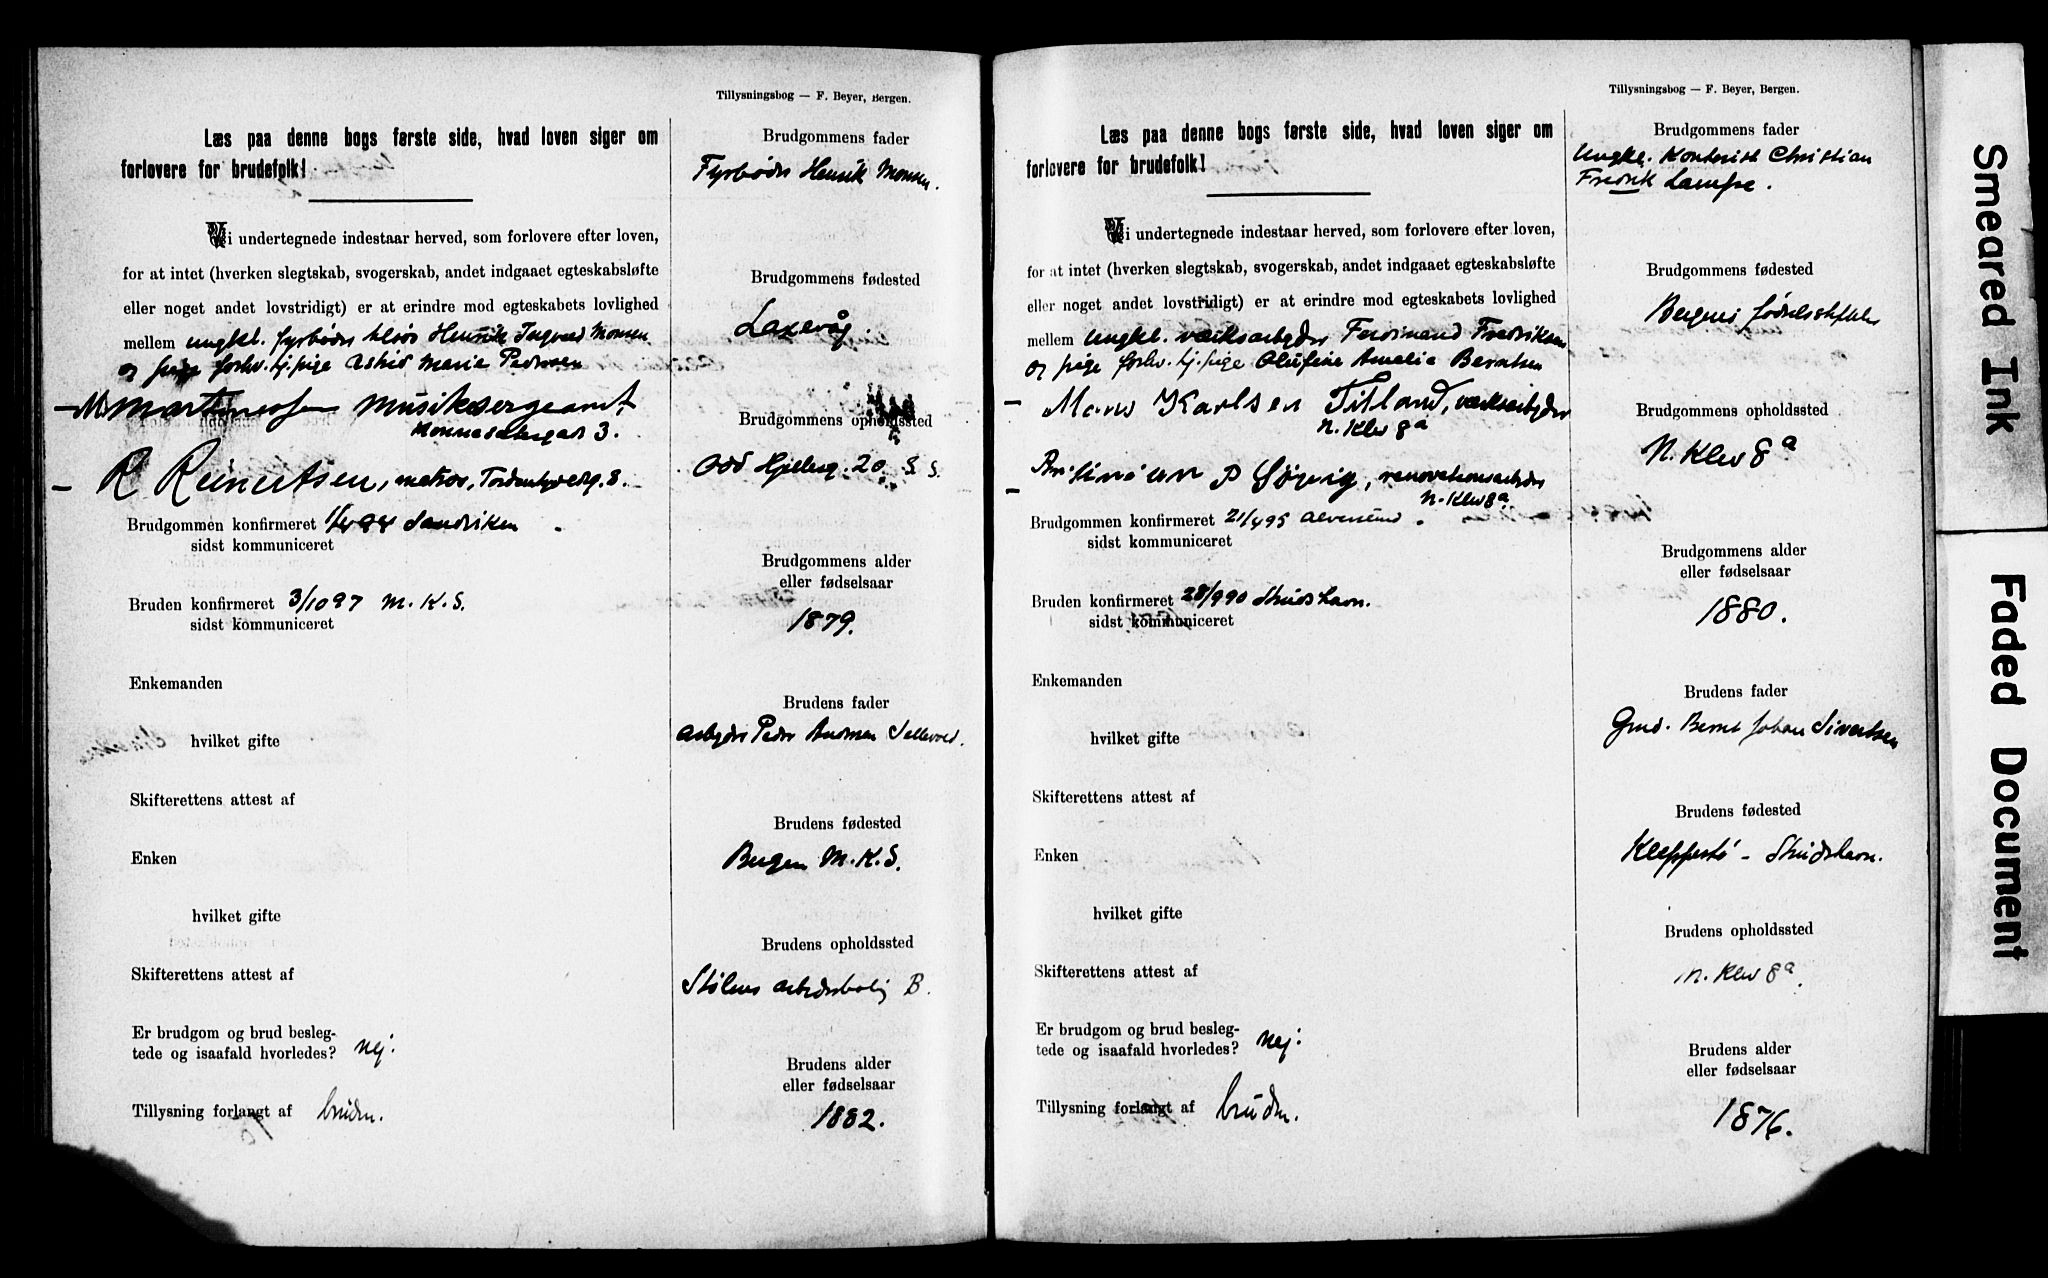 Tillysningsbog — F. Beyer, Bergen.
Læs paa denne bogs første side, hvad loven siger om
forlovere for brudefolk!
Vi undertegnede indestaar herved, som forlovere efter loven,
for at intet (hverken slegtskab, svogerskab, andet indgaaet egteskabsløfte
eller noget andet lovstridigt) er at erindre mod egteskabets lovlighed
mellem ungkl. fyrbøder Henrik Ingvald Monsen
og pige forhv. tj.pige Astrid Marie Pedersen
Martinussen Musiksergeant,
3.
R Reinertsen, matros, 8.
Brudgommen konfirmeret Sandviken
sidst kommuniceret
Bruden konfirmeret 3/10 97 M. K. S.
sidst kommuniceret
Enkemanden
hvilket gifte
Skifterettens attest af
Enken
hvilket gifte
Skifterettens attest af
Er brudgom og brud besleg-
tede og isaafald hvorledes? nej.
Tillysning forlangt af bruden.
Brudgommens fader
Fyrbøder Henrik Monsen.
Brudgommens fødested
Laxevåg.
Brudgommens opholdssted
Odd Hjelmsg. 20. S. S.
Brudgommens alder
eller fødselsaar
1879.
Brudens fader
arbeyder Peder Andersen Sellevold.
Brudens fødested
Bergen M. K. S.
Brudens opholdssted
Stølens arbeiderbolig B.
Brudens alder
eller fødselsaar
1882.
Tillysningsbog — F. Beyer, Bergen.
Læs paa denne bogs første side, hvad loven siger om
forlovere for brudefolk!
Vi undertegnede indestaar herved, som forlovere efter loven,
for at intet (hverken slegtskab, svogerskab, andet indgaaet egteskabsløfte
eller noget andet lovstridigt) er at erindre mod egteskabets lovlighed
mellem Ungkl. værksarbeyder Ferdinand Fredriksen
og pige forhv. tj. pige Olufine Amalie Berntsen
Mons Karlsen Titland, værksarbeyder
N. Klev 8a
P Søvig, renovationsarbeider
N. Klev 8a
Brudgommen konfirmeret 21/4 95 Alversund.
sidst kommuniceret
Bruden konfirmeret 28/9 90 Strudshavn.
sidst kommuniceret
Enkemanden
hvilket gifte
Skifterettens attest af
Enken
hvilket gifte
Skifterettens attest af
Er brudgom og brud besleg-
tede og isaafald hvorledes? nej.
Tillysning forlangt af bruden.
Brudgommens fader
Ungkl. Kontorist Christian
Fredrik Lampe.
Brudgommens fødested
Bergens fødselsstiftelse
Brudgommens opholdssted
N. Klev 8a
Brudgommens alder
eller fødselsaar
1880.
Brudens fader
Gmd. Bernt Johan Sivertsen
Brudens fødested
Kleppestø - Strudshavn.
Brudens opholdssted
N. Klev 8a.
Brudens alder
eller fødselsaar
1876.
Smeared Ink
Faded Document